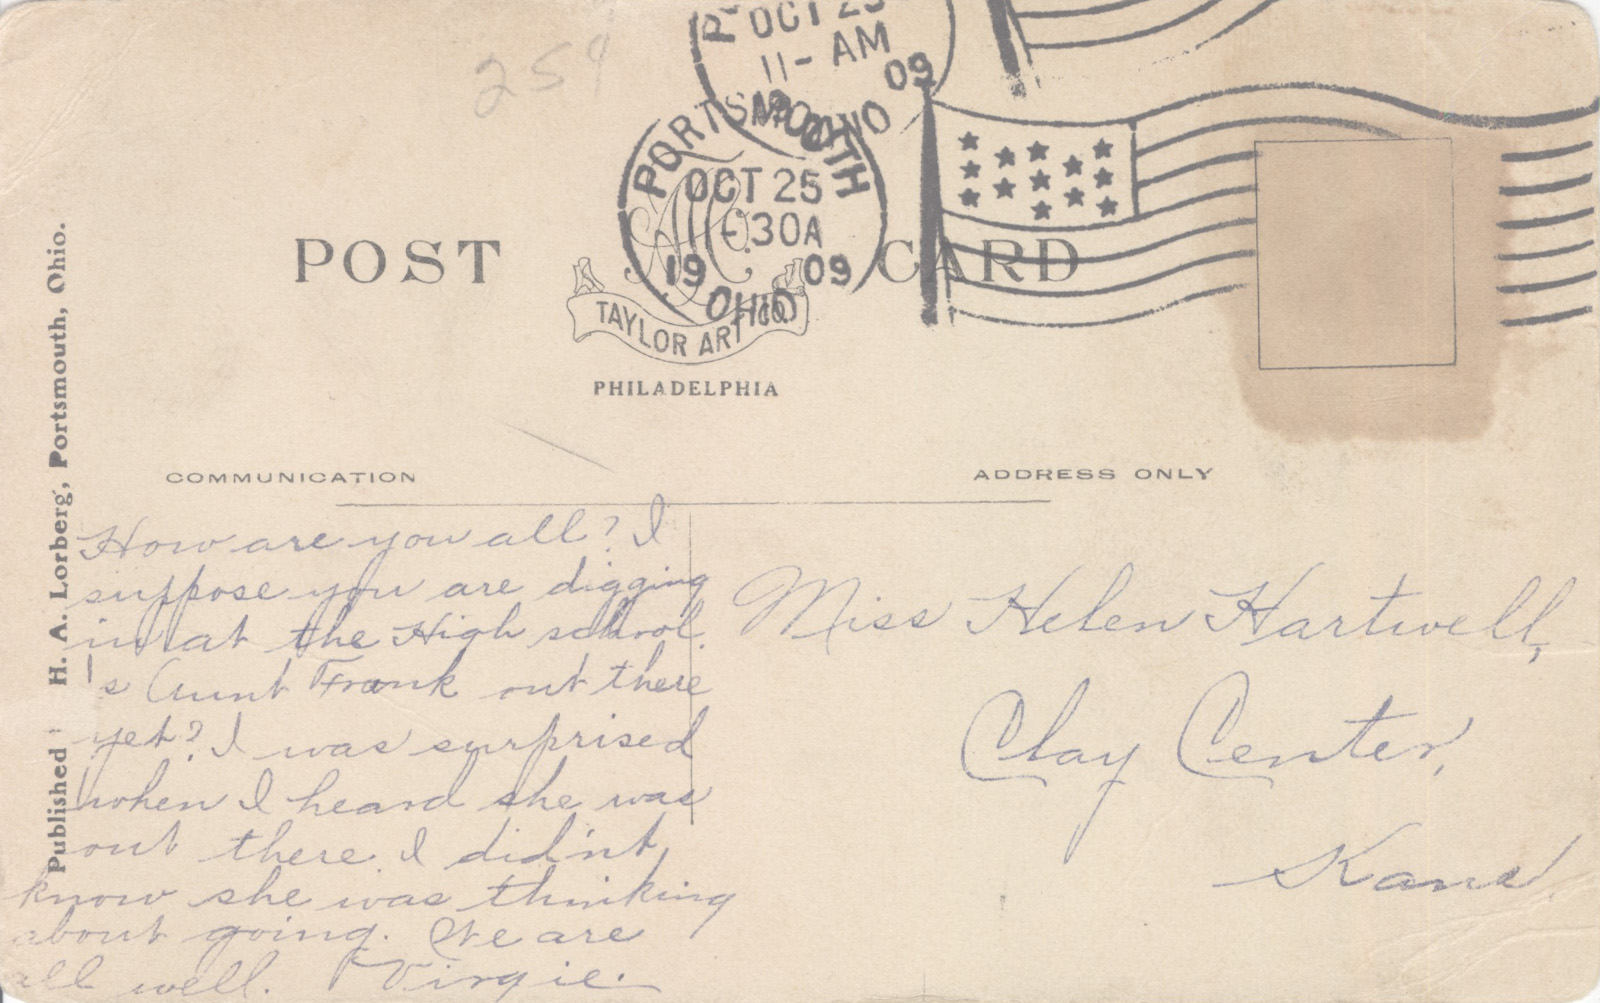 259
OCT 25
11- AM
09
OHIO
PORTSMOUTH
OCT 25
-30A
19 09
OHIO
POST CARD
TAYLOR ART CO.
PHILADELPHIA
Published H. A. Lorberg, Portsmouth, Ohio.
COMMUNICATION
ADDRESS ONLY
How are you all? I
suppose you are digging
in at the High school.
Is Aunt Frank out there
yet? I was surprised
when I heard she was
out there. I didn't
know she was thinking
about going. We are
all well. Virgie.
Miss Helen Hartwell,
Clay Center,
Kans.